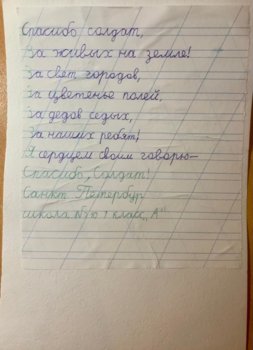 Спасибо солдат,
За живых на земле!
За свет городов,
За цветенье полей,
За дедов седых,
За наших ребят!
Я сердцем своим говорю-
Спасибо, Солдат!
Санкт Петербур
школа № 1 класс "А"